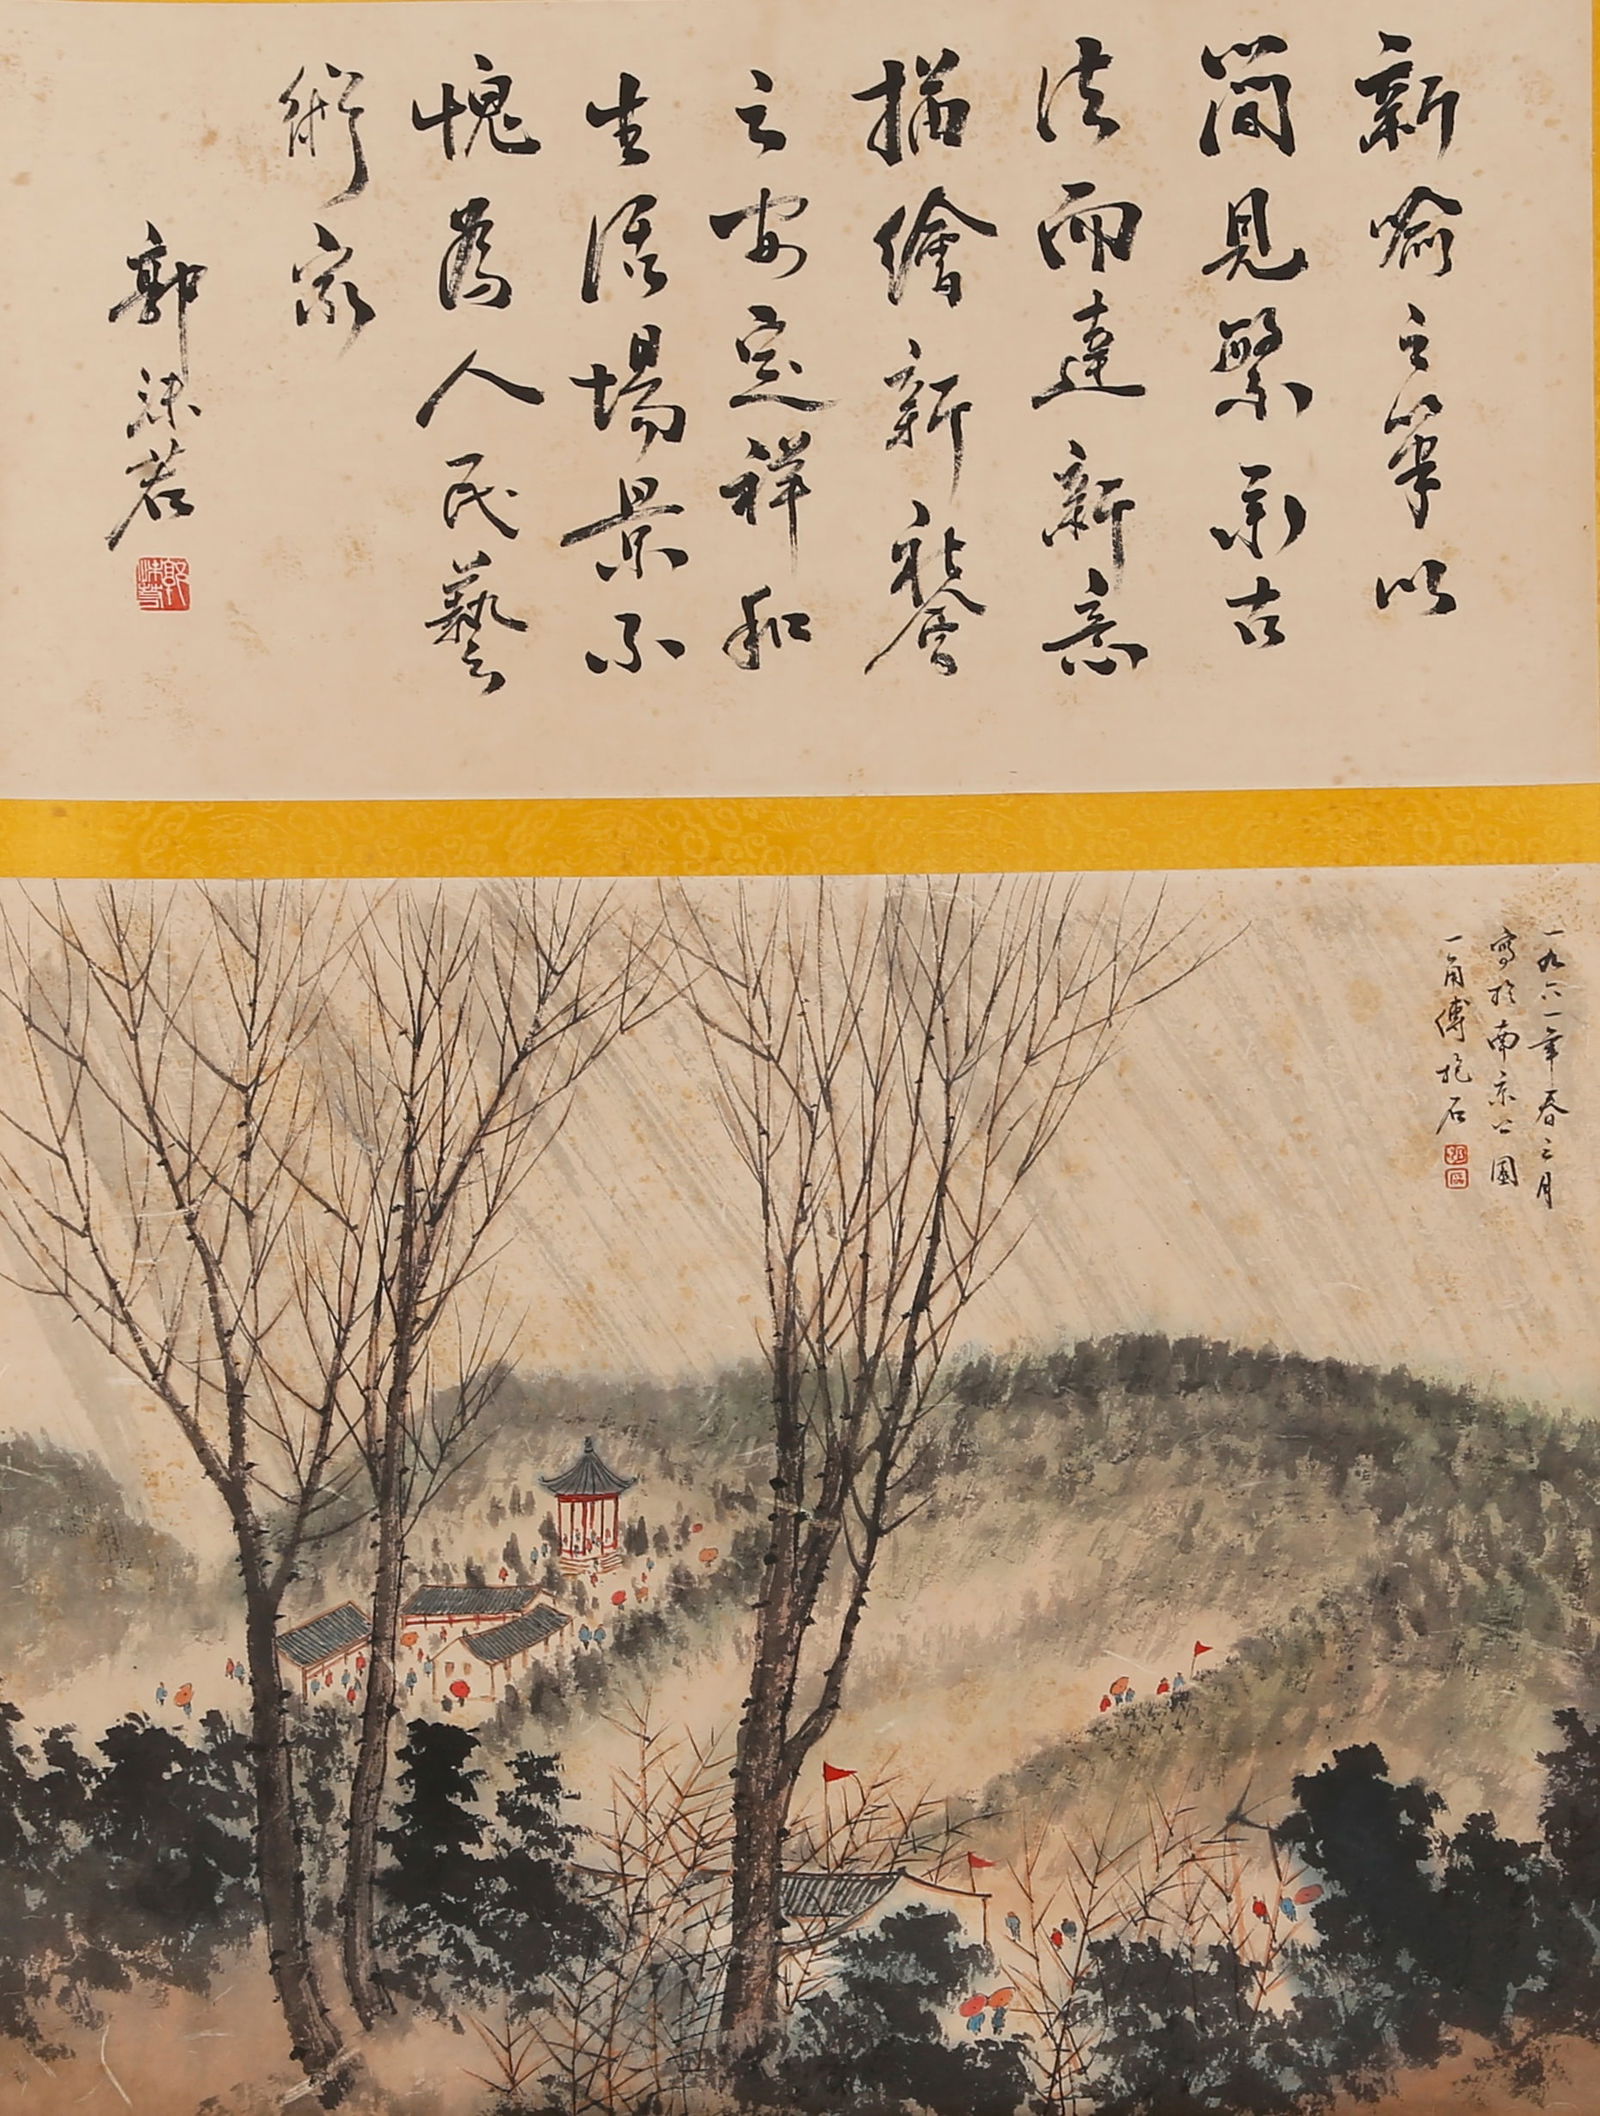 新喻之筆以
簡見繁承古
法而達新意
描繪新社會
之安定祥和
生活場景不
愧為人民藝
術家
郭沫若
郭沫若
一九六一年春月
寫於南京公園
一角傅抱石